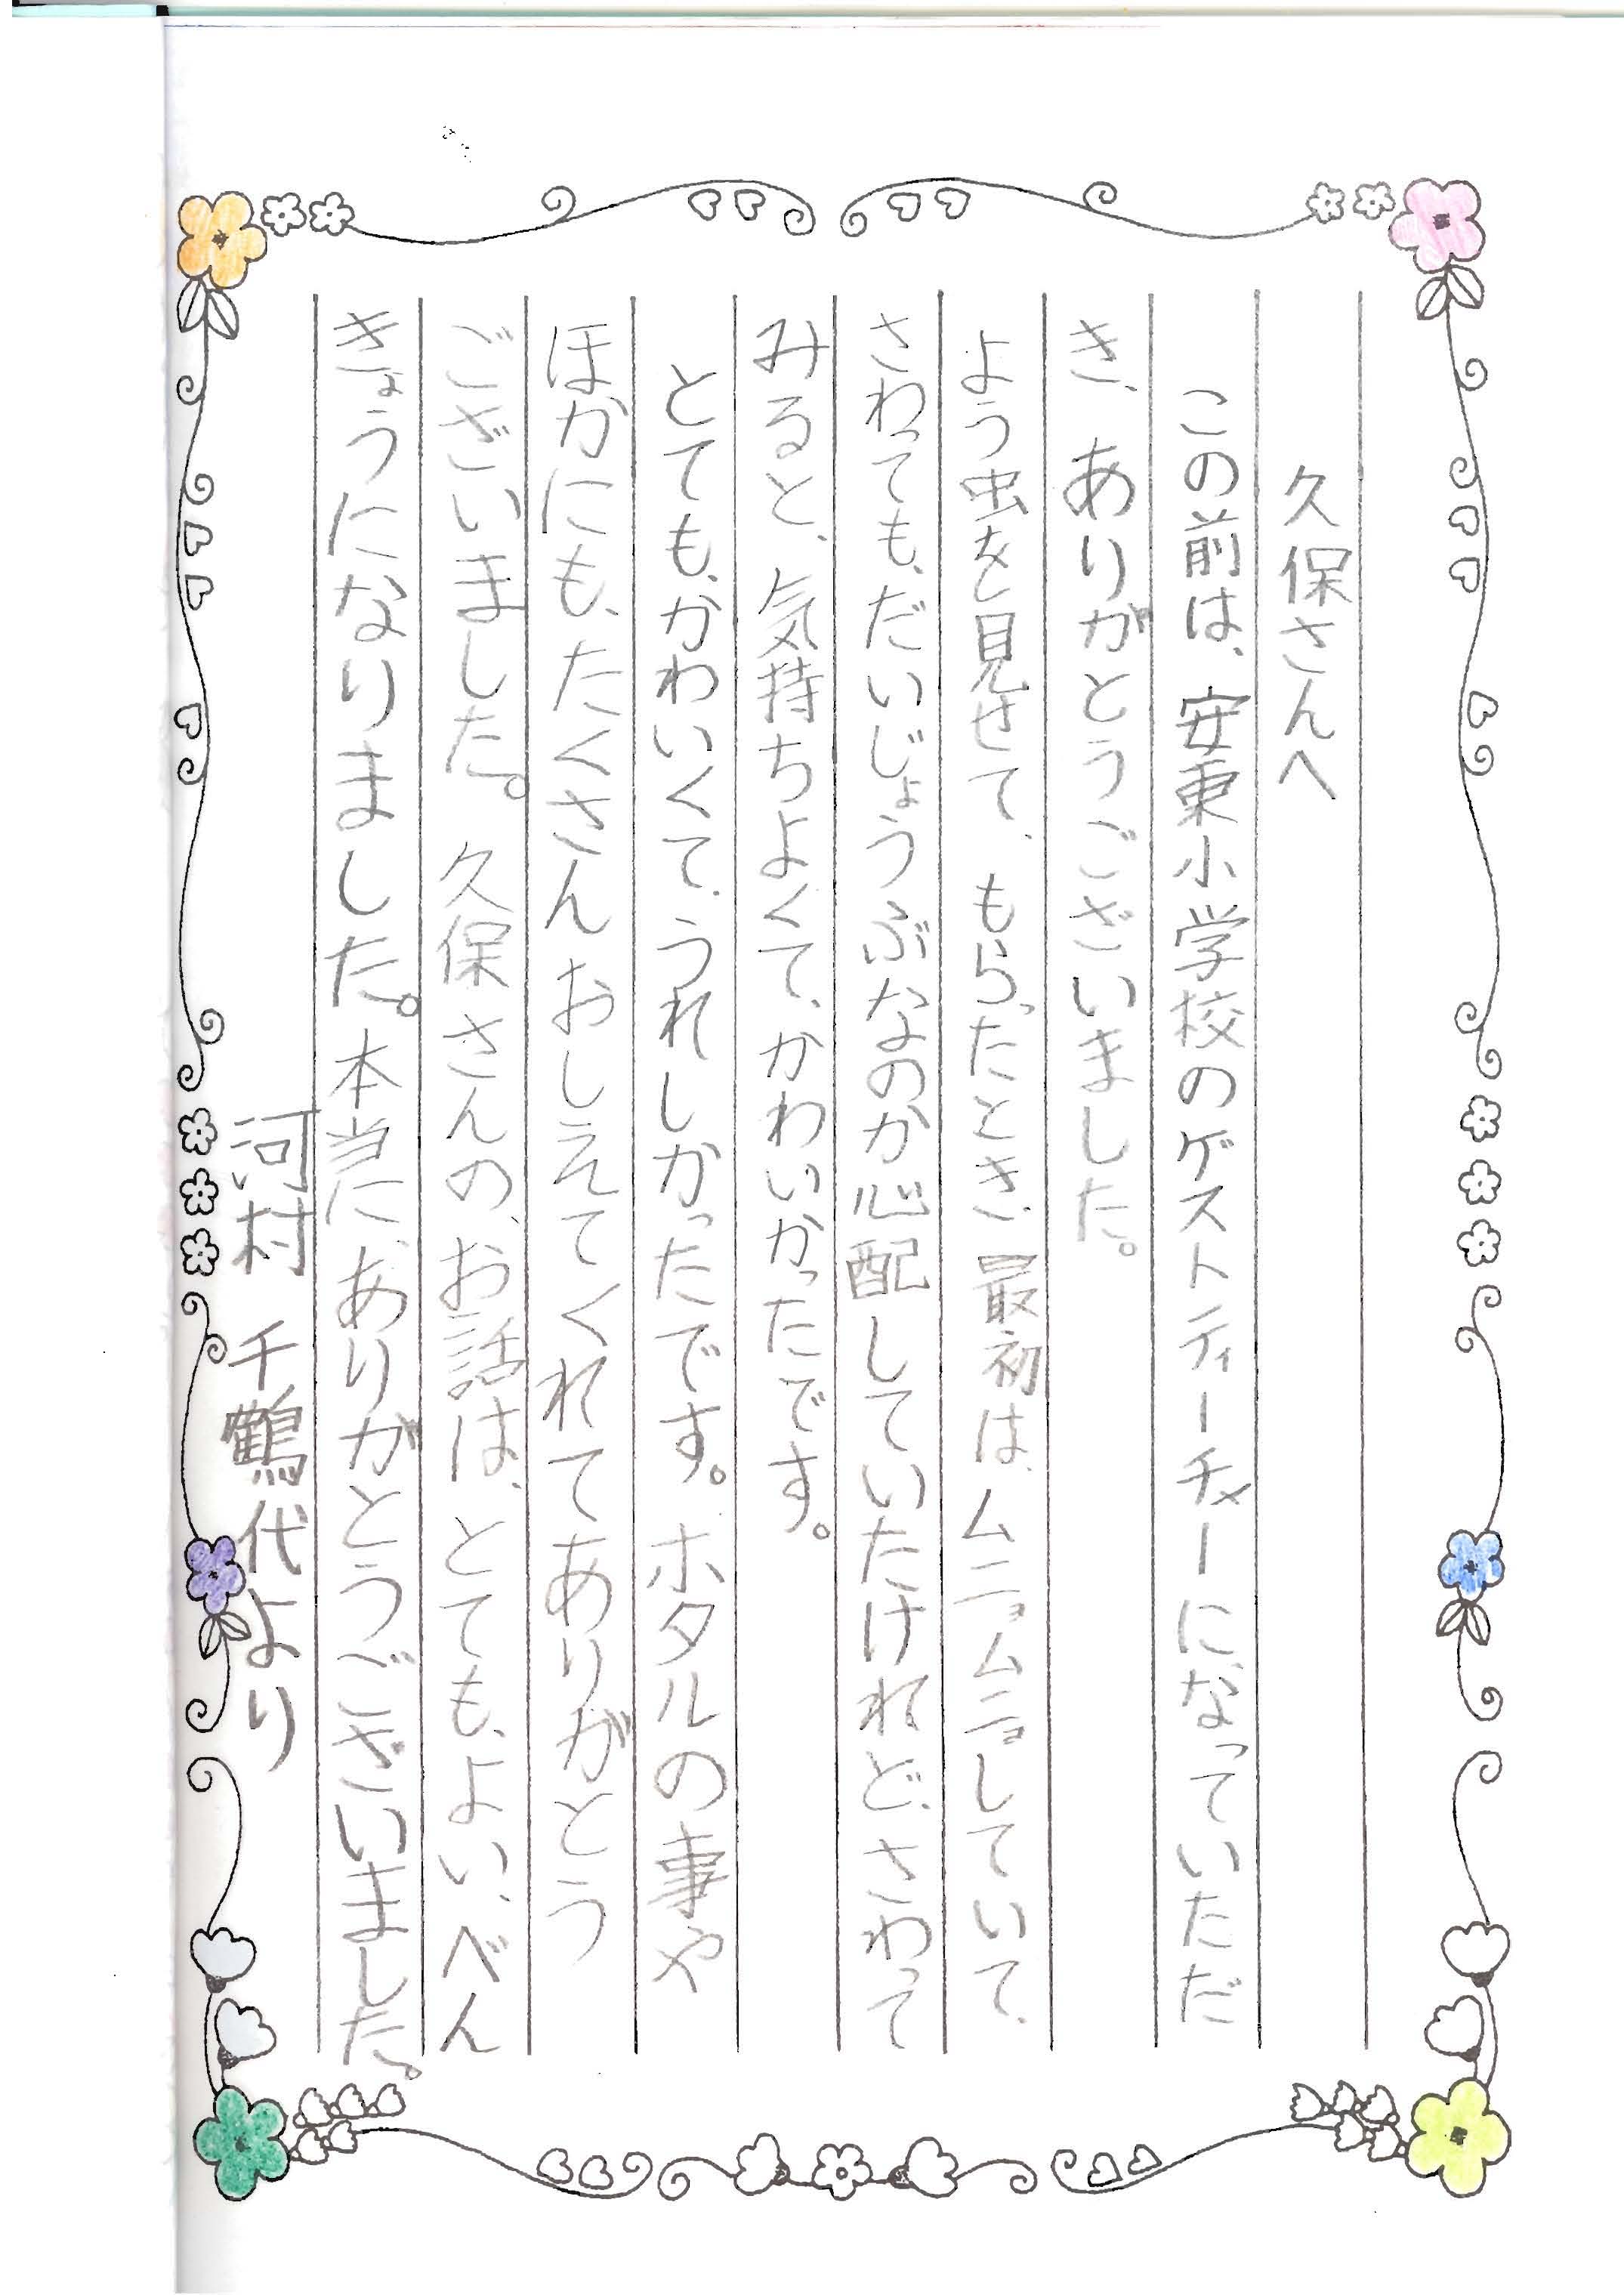 久保さんへ
この前は、安東小学校のゲストティーチャーになっていただ
き、ありがとうございました。
よう虫を見せて、もらったとき、最初は、ムニョムニョしていて、
さわっても、だいじょうぶなのか心配していたけれど、さわって
みると、気持ちよくて、かわいかったです。
とても、かわいくて、うれしかったです。ホタルの事や
ほかにも、たくさんおしえてくれてありがとう
ございました。久保さんの、お話は、とても、よい、べん
きょうになりました。本当に、ありがとうございました。
河村 千鶴代より